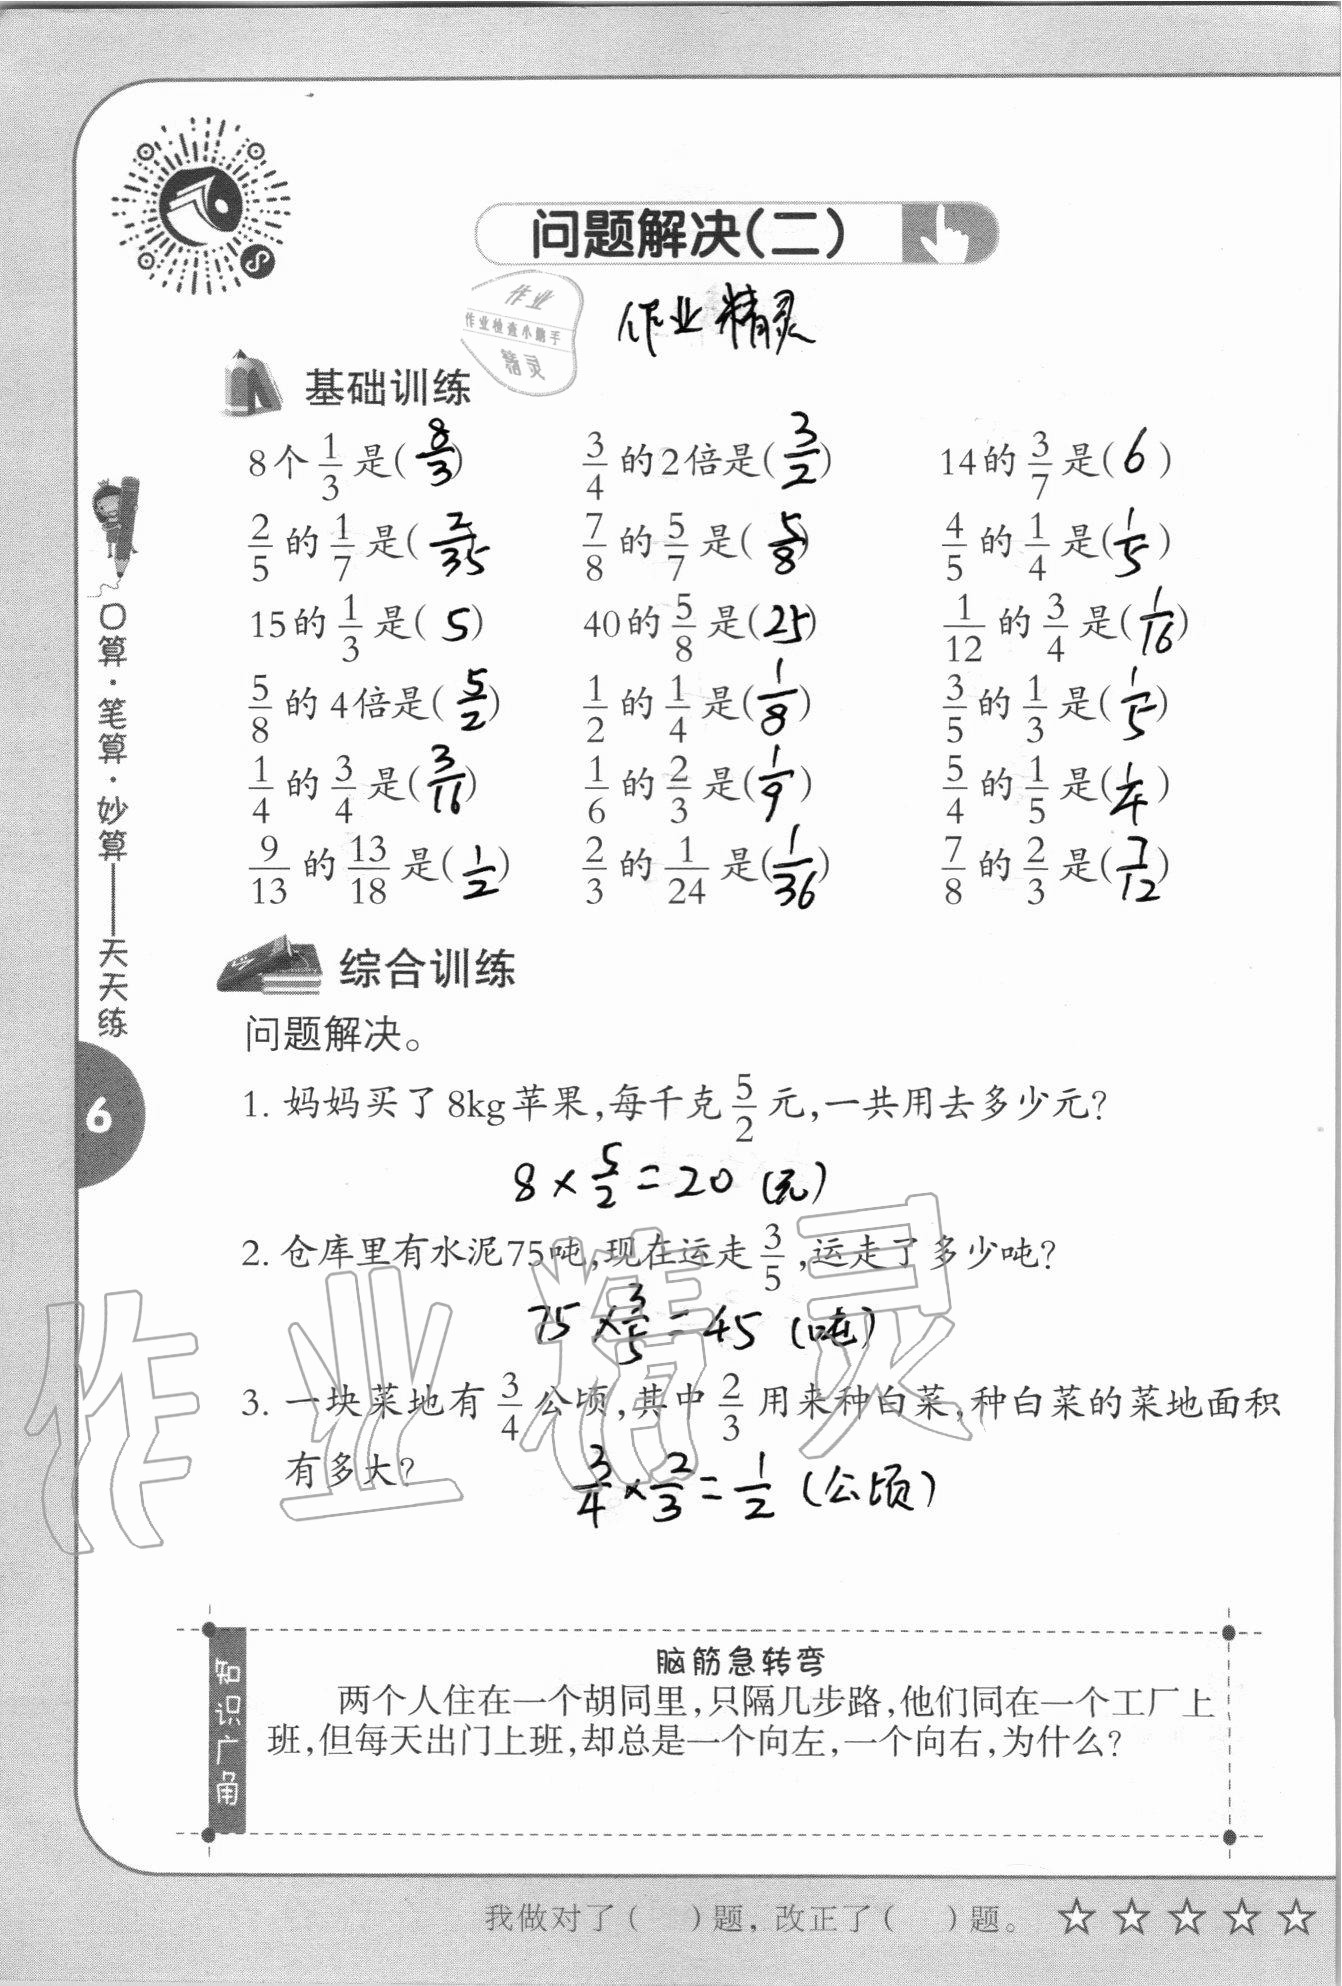 问题解决(二)
作业
作业检查小帮手
精灵
作业精灵
基础训练
8个1/3是(8/3) 3/4的2倍是(3/2) 14的3/7是(6)
2/5的1/7是(2/35) 7/8的5/7是(5/8) 4/5的1/4是(1/5)
15的1/3是(5) 40的5/8是(25) 1/12的3/4是(1/16)
5/8的4倍是(5/2) 1/2的1/4是(1/8) 3/5的1/3是(1/5)
1/4的3/4是(3/16) 1/6的2/3是(1/9) 5/4的1/5是(1/4)
9/13的13/18是(1/2) 2/3的1/24是(1/36) 7/8的2/3是(7/12)
综合训练
问题解决。
1. 妈妈买了8kg苹果,每千克5/2元,一共用去多少元?
8×5/2=20 (元)
2. 仓库里有水泥75吨,现在运走3/5,运走了多少吨?
75×3/5=45 (吨)
3. 一块菜地有3/4公顷,其中2/3用来种白菜,种白菜的菜地面积
有多大?
3/4×2/3=1/2 (公顷)
作业精灵
知识广角
脑筋急转弯
两个人住在一个胡同里,只隔几步路,他们同在一个工厂上
班,但每天出门上班,却总是一个向左,一个向右,为什么?
口算·笔算·妙算——天天练
6
我做对了( )题,改正了( )题。